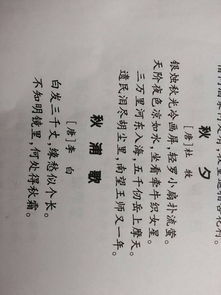 秋夕
[唐]杜牧
银烛秋光冷画屏,轻罗小扇扑流萤。
天阶夜色凉如水,坐看牵牛织女星。
三万里河东入海,五千仞岳上摩天。
遗民泪尽胡尘里,南望王师又一年。
秋浦歌
[唐]李白
白发三千丈,缘愁似个长。
不知明镜里,何处得秋霜。